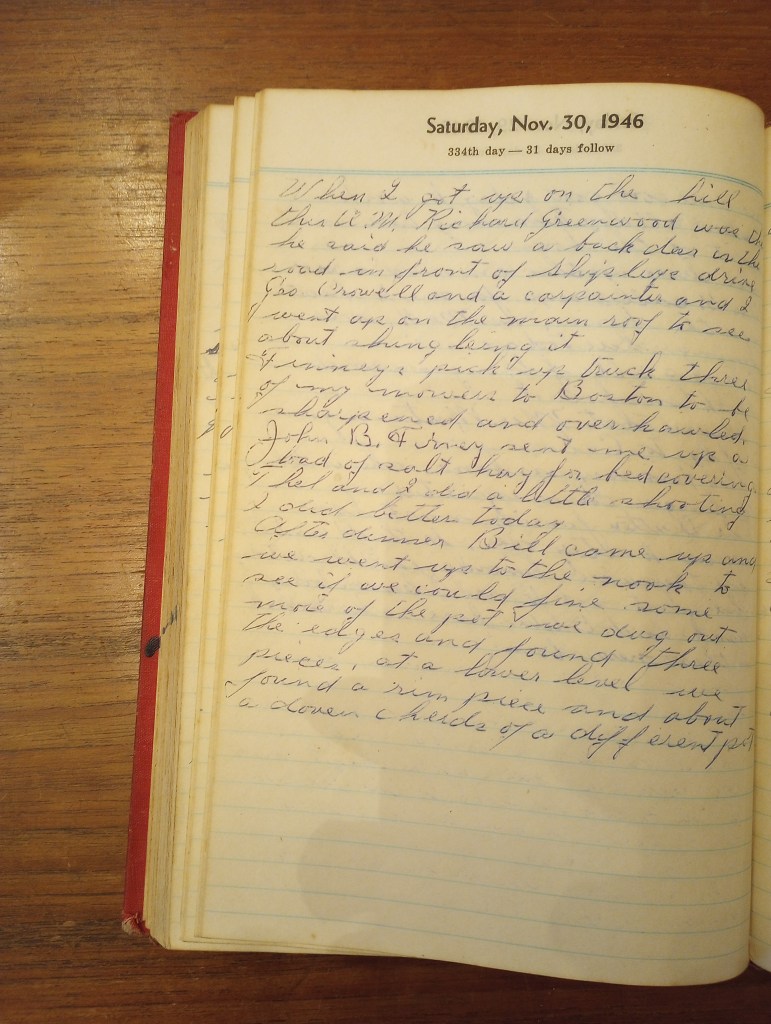 Saturday, Nov. 30, 1946
334th day — 31 days follow
When I got up on the hill
this A.M. Richard Greenwood was
he said he saw a buck dear in the
road in front of drive
Geo Crowell and a carpainter and I
went up on the main roof to see
about shing leing it
Finneys pick up truck three
of my mowers to Boston to be
sharpened and over hawled.
John B. Finney sent me up a
load of salt hay for bed covering
Thel and I did a little shooting
I did better today
After dinner Bill came up and
we went up to the nook to
see if we could fine some
more of the pot. we dug out
the edges and found three
pieces, at a lower level we
found a rim piece and about
a doven cherds of a different pot